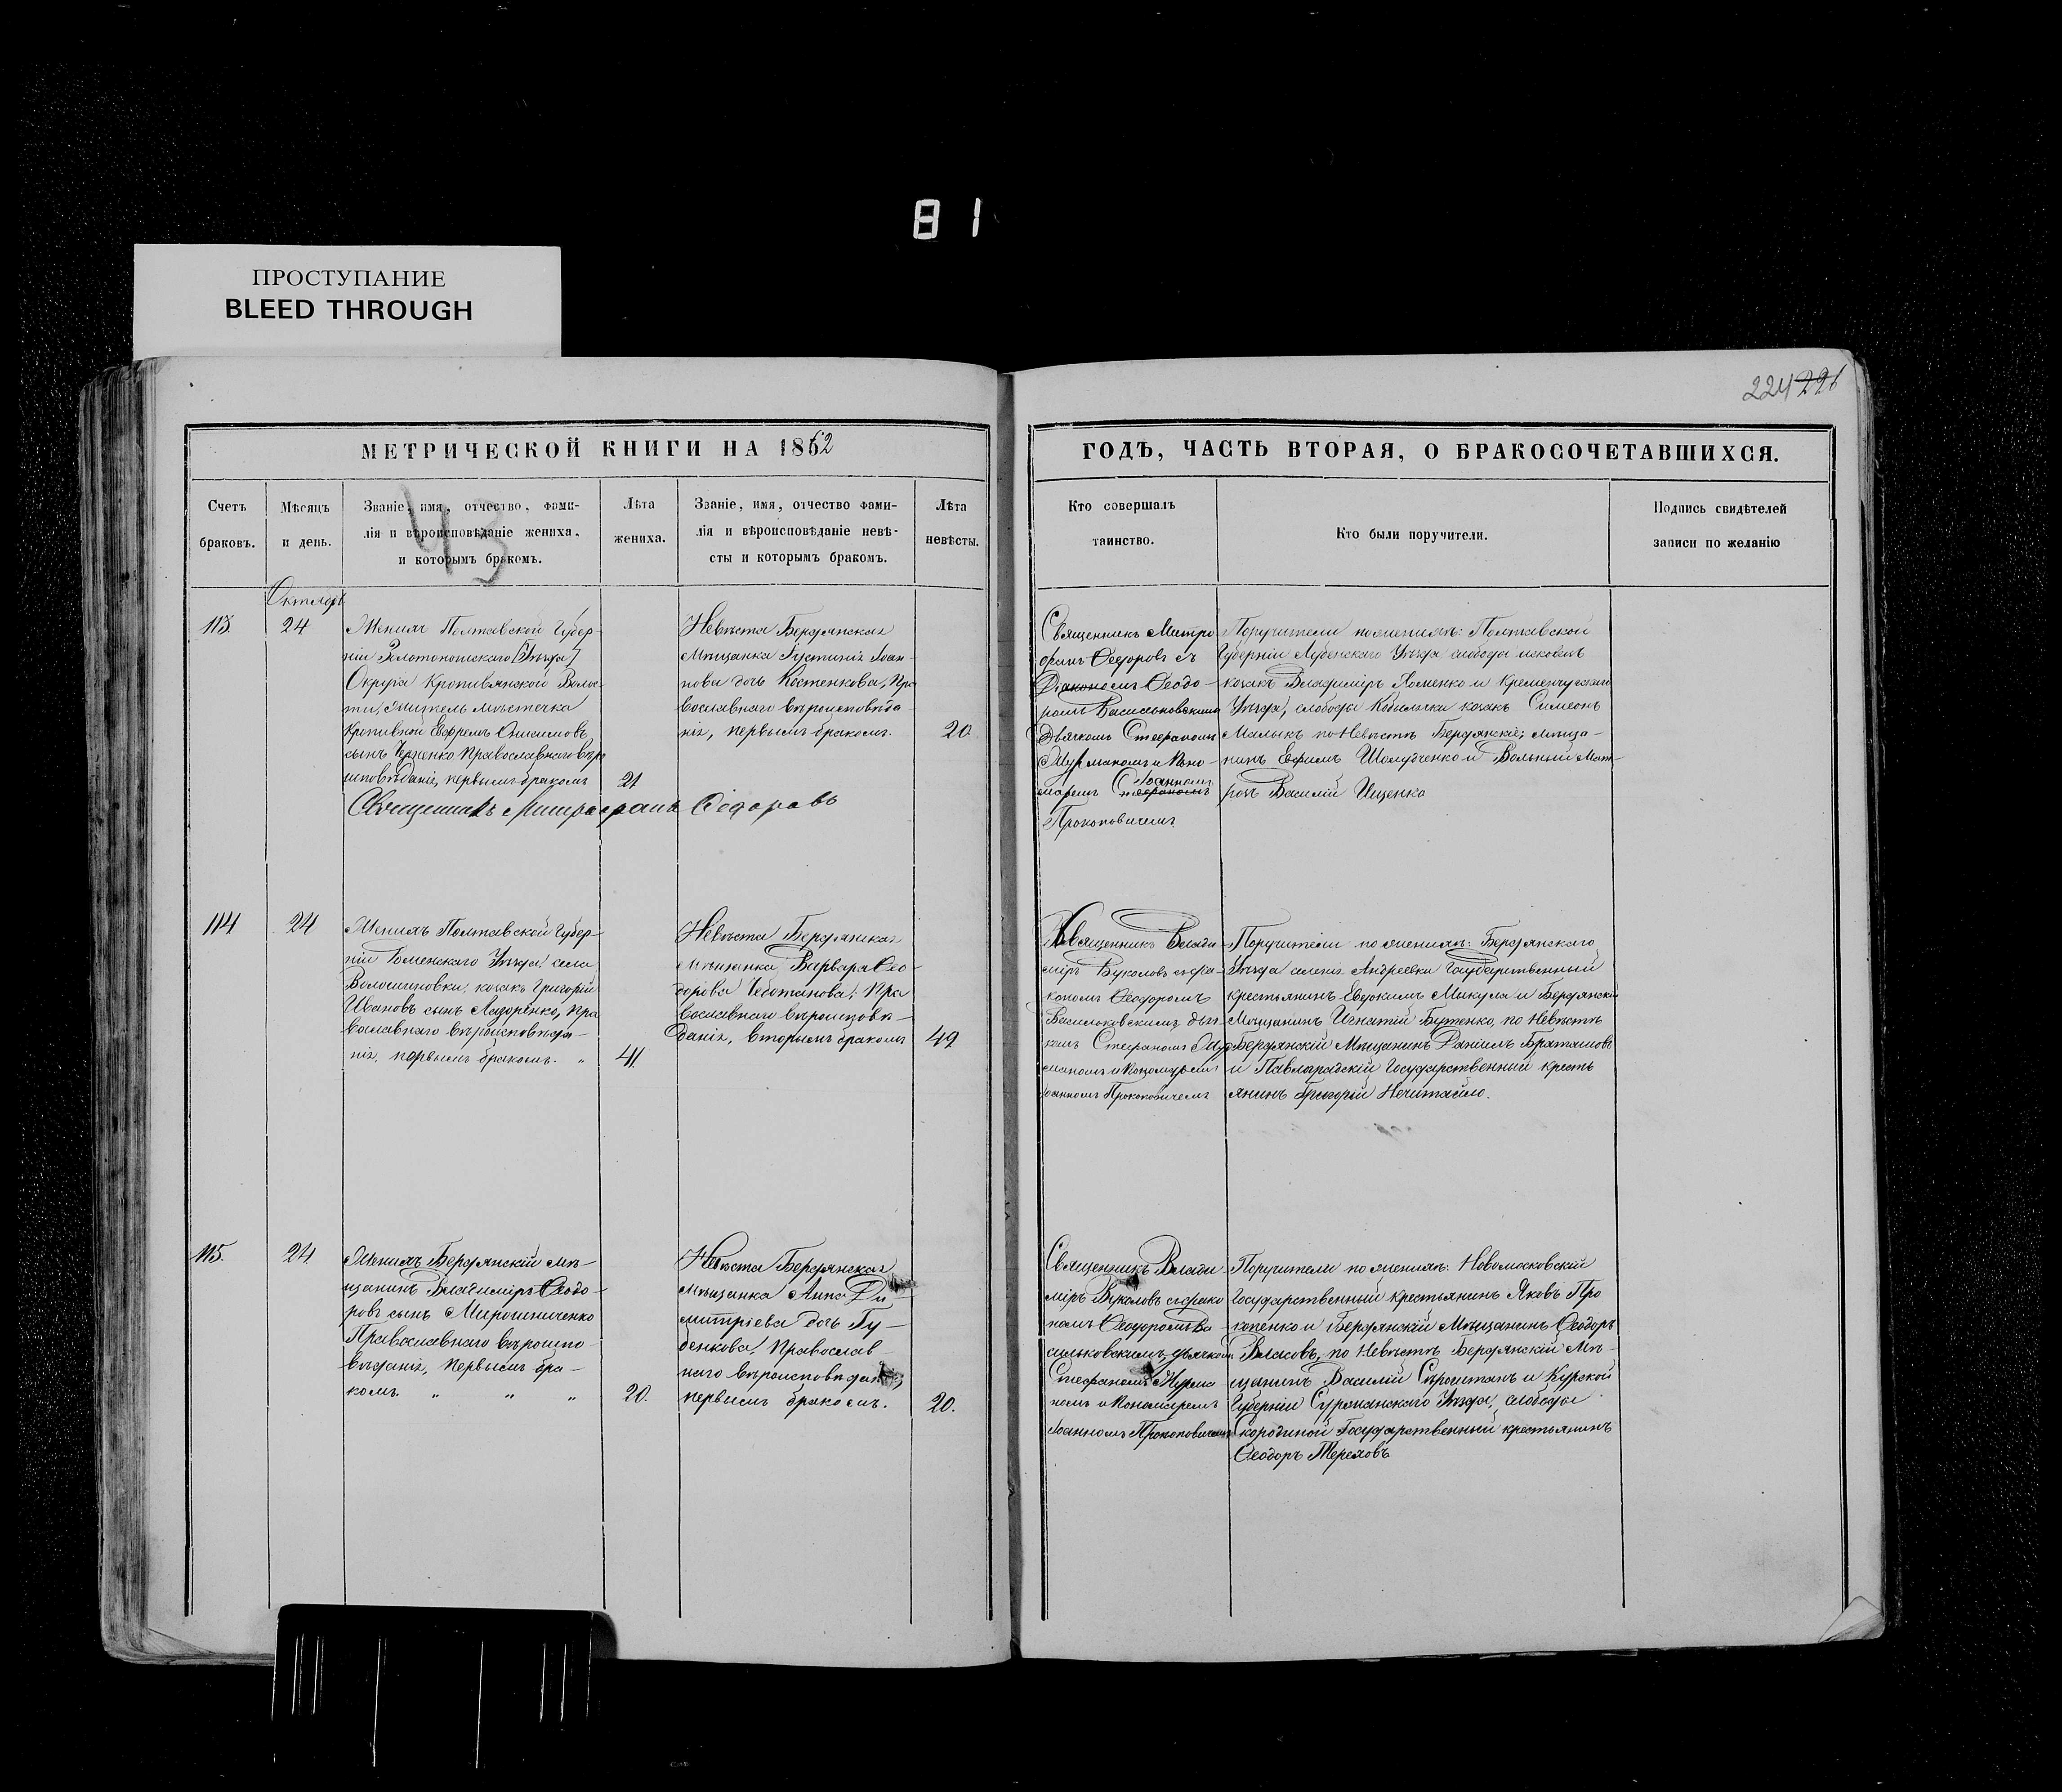 81
ПРОСТУПАНИЕ
BLEED THROUGH
224 221
МЕТРИЧЕСКОЙ КНИГИ НА 1862
ГОДЪ, ЧАСТЬ ВТОРАЯ, О БРАКОСОЧЕТАВШИХСЯ.
Счетъ
браковъ.
Мѣсяцъ
и день.
Званіе, имя, отчество, фами-
лія и вѣроисповѣданіе жениха,
и которымъ бракомъ.
Лѣта
жениха.
Званіе, имя, отчество фами-
лія и вѣроисповѣданіе невѣ-
сты и которымъ бракомъ.
Лѣта
невѣсты.
Кто совершалъ
таинство.
Кто были поручители.
Подпись свидѣтелей
записи по желанію
43
Октября
113.
24
Женихъ Полтавской Губер-
ніи Золотоношскаго [Уѣзда]
Округа Кропивянской Волос-
ти, житель мѣстечка
Кропивной Ефремъ Онисимовъ
сынъ Православнаго вѣро
исповѣданія, первымъ бракомъ
21
Невѣста Бердянская
Мѣщанка Іустинія Іоан-
нова дочь Костенкова, Пра
вославнаго вѣроисповѣда-
нія, первымъ бракомъ.
20
Священникъ Митрофанъ Ѳедоровъ
Священникъ Митро
фанъ Ѳедоровъ съ
Діакономъ Ѳеодо-
ромъ Васильковскимъ
Дьячкомъ Стефаномъ
Журманомъ и Поно-
Іоанномъ
маремъ Стефаномъ
Прокоповичемъ
Поручители по женихѣ: Полтавской
Губерніи Лубенскаго Уѣзда слободы
козакъ Владиміръ Хоменко и Кременчугскаго
Уѣзда, слободы Кобылячки козакъ Симеонъ
Малыкъ по Невѣстѣ Бердянскіе мѣща-
нинъ Ефимъ Шолудченко и Вольный Мат-
росъ Василій Ищенко
114
24
Женихъ Полтавской Губер-
ніи Роменскаго Уѣзда, села
Волошиновки, козакъ Григорій
Ивановъ сынъ Лазоренко, Пра
вославнаго вѣроисповѣда-
нія, первымъ бракомъ. "
41.
Невѣста Бердянская
Мѣщанка Варвара Ѳео-
дорова Чеботанова, Пра
вославнаго вѣроисповѣ-
данія, вторымъ бракомъ
49
Священникъ Влади
міръ Вукаловъ съ діа-
кономъ Ѳеодоромъ
Васильковскимъ дьяч-
комъ Стефаномъ Жур
маномъ и Пономаремъ
Іоанномъ Прокоповичемъ
Поручители по женихѣ: Бердянскаго
Уѣзда селенія Андреевки Государственный
крестьянинъ Евдокимъ Микула и Бердянскій
Мѣщанинъ Игнатій Бутенко, по Невѣстѣ
Бердянскій Мѣщанинъ Даніилъ Браташовъ
и Павлоградскій Государственный кресть
янинъ Григорій Нечитайло.
115.
24
Женихъ Бердянскій мѣ-
щанинъ Владиміръ Ѳеодо-
ровъ сынъ Мирошниченко
Православнаго вѣроиспо-
вѣданія, первымъ бра-
комъ. " " "
20.
Невѣста Бердянская
мѣщанка Анна Ди-
митріева дочь Гу-
денкова, Православ-
наго вѣроисповѣданія,
первымъ бракомъ.
20.
Священникъ Влади
міръ Вукаловъ съ діако
номъ Ѳеодоромъ Ва-
сильковскимъ, дьячкомъ
Стефаномъ Журма
номъ и Пономаремъ
Іоанномъ Прокоповичемъ
Поручители по женихѣ: Новомосковскій
Государственный крестьянинъ Яковъ Про
копенко и Бердянскій Мѣщанинъ Ѳеодоръ
Власовъ, по Невѣстѣ Бердянскій Мѣ-
щанинъ Василій и Курской
Губерніи Суджанскаго Уѣзда, слободы
Скородной Государственный крестьянинъ
Ѳеодоръ Тереховъ